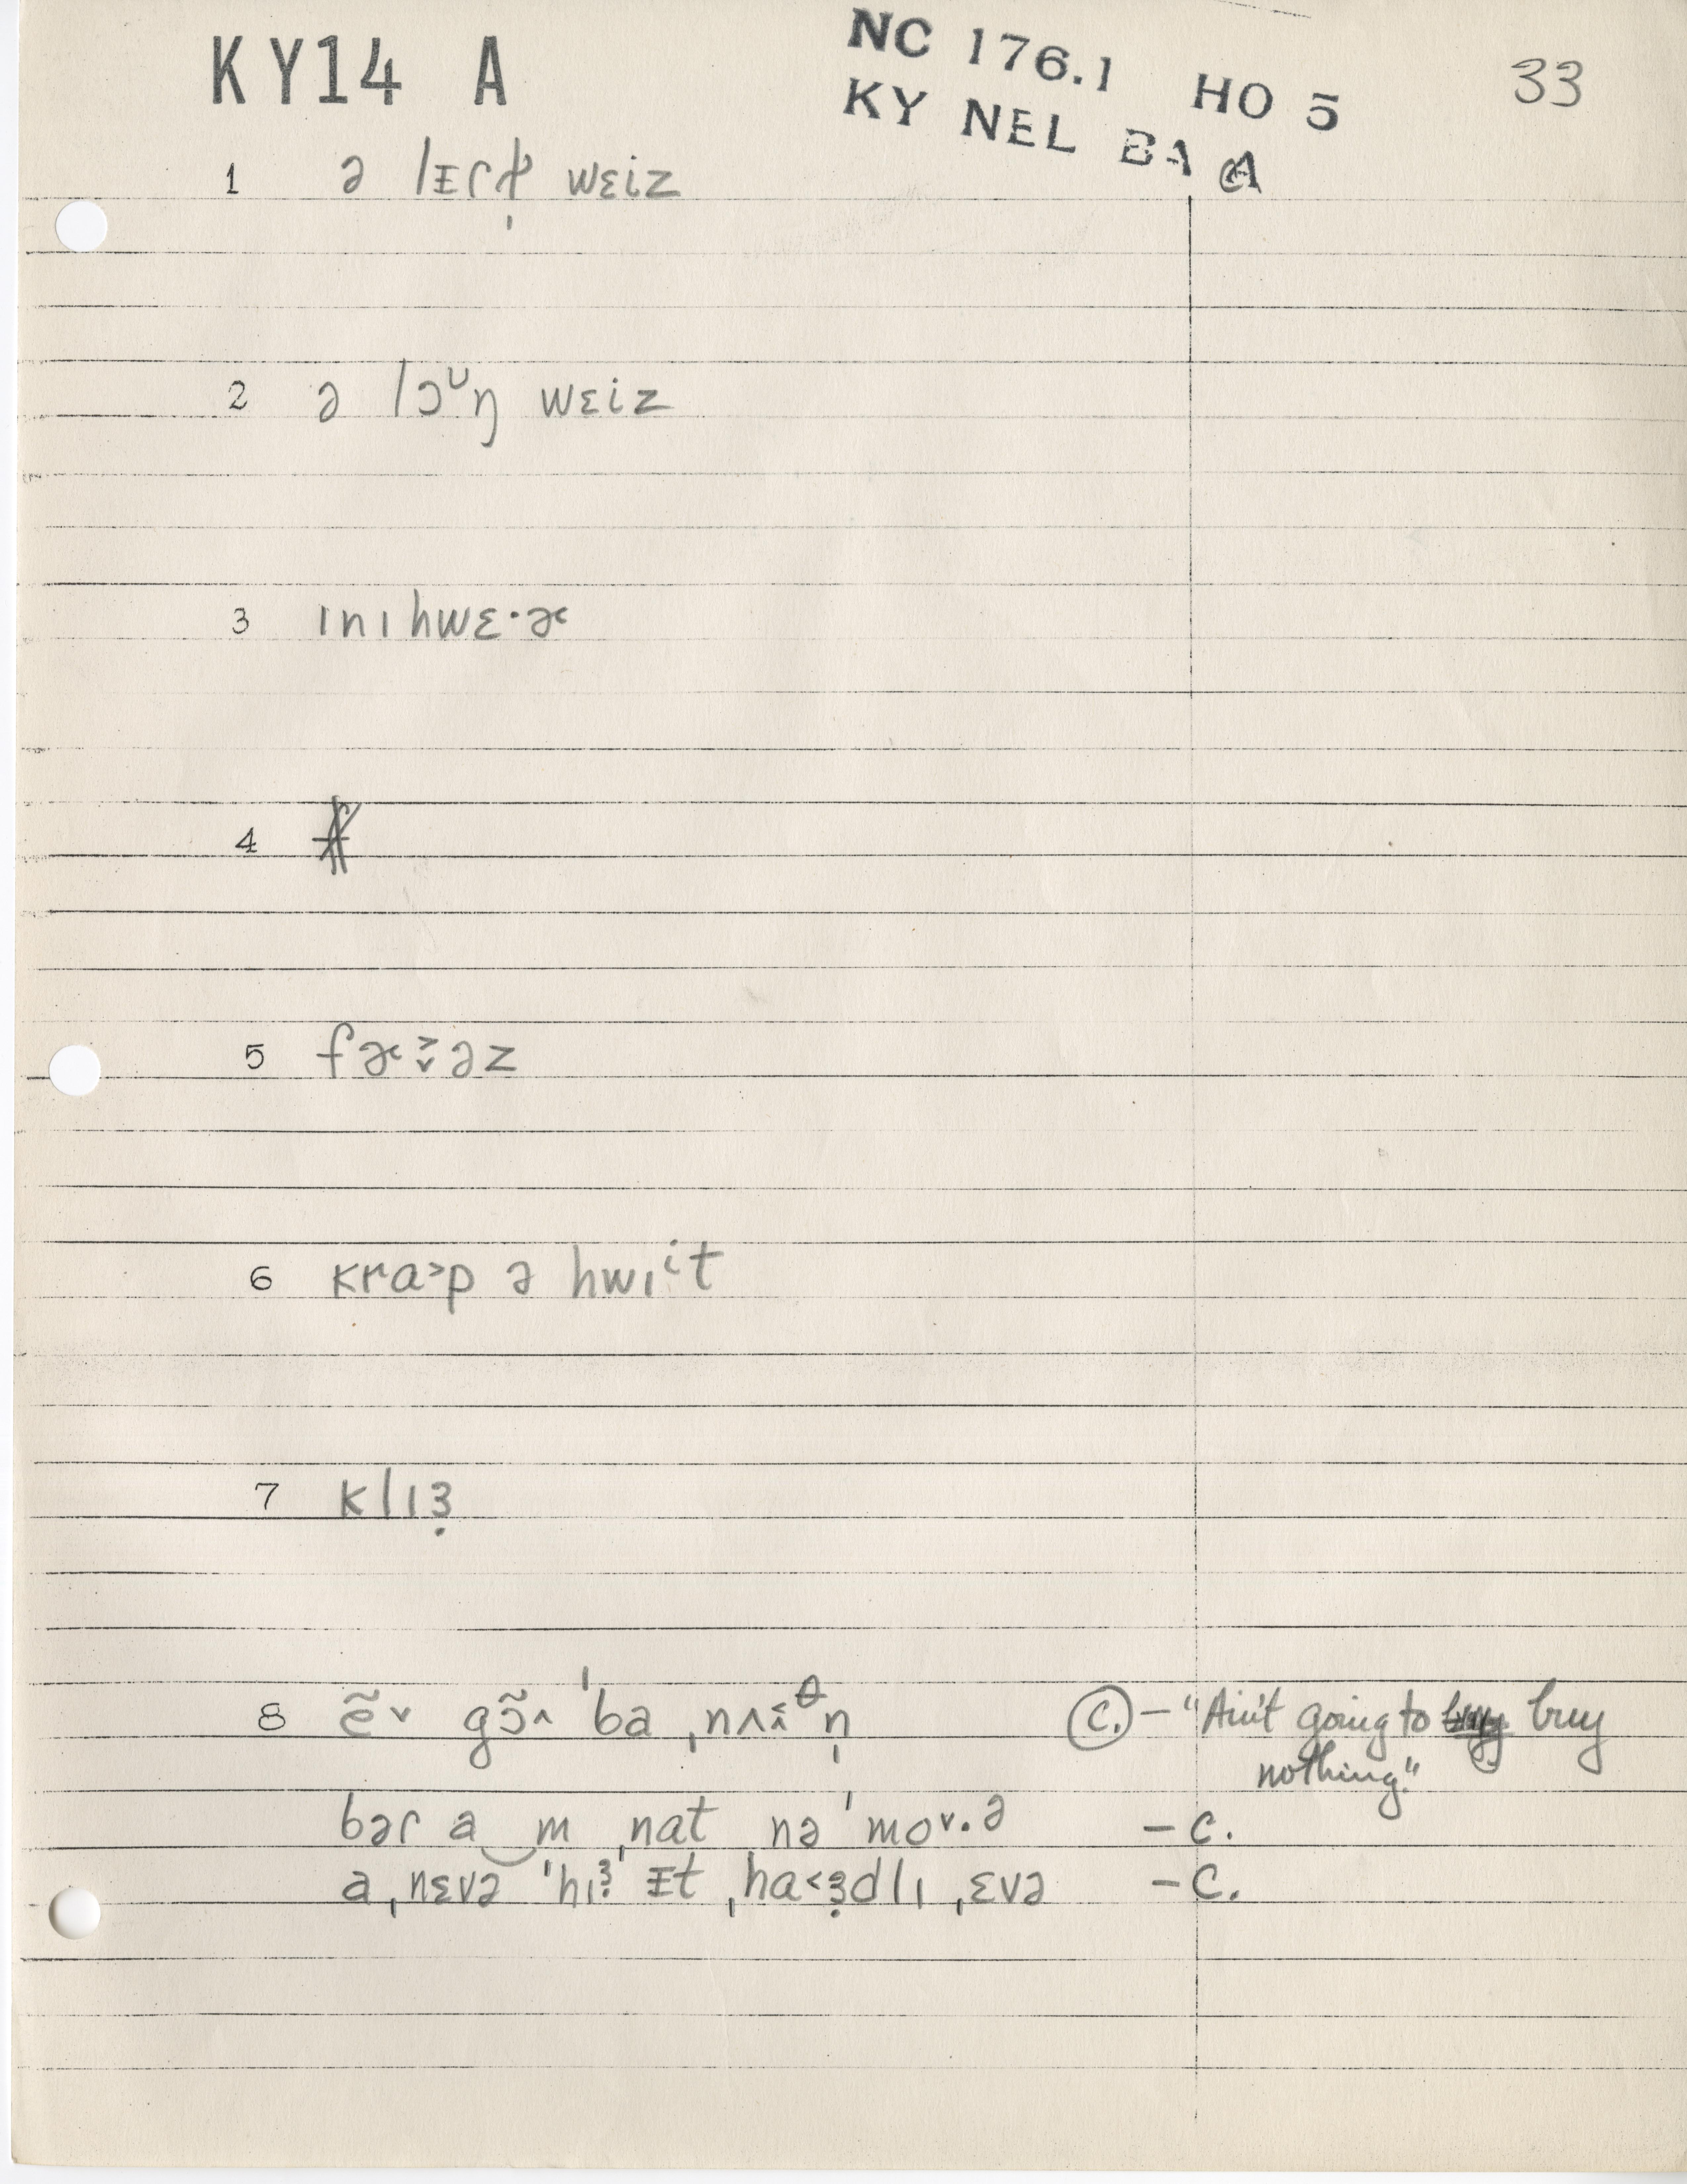 KY14 A
NC 176.1 HO 5
KY NEL BA A
33
1 ə lᵻɾɫ̩ wɛiz
2 ə lɔᶸŋ wɛiz
3 ɪnɪhwɛ·ɚ
4
5 fɚ˃˅əz
6 kra˃p ə hwɪⁱt
7 klɪʒ̣
8 ẽ˅ gɔ̃˄ ˈba ˌnʌiᶿn̩
©. – "Ain't going to buy buy
nothing."
bəɾ a‿m ˌnat nə ˈmo˅·ə – C.
a ˌnɛvə ˈhɪᶾ ᵻt ˌha˂ʒ̣dlɪ ˌɛvə – C.